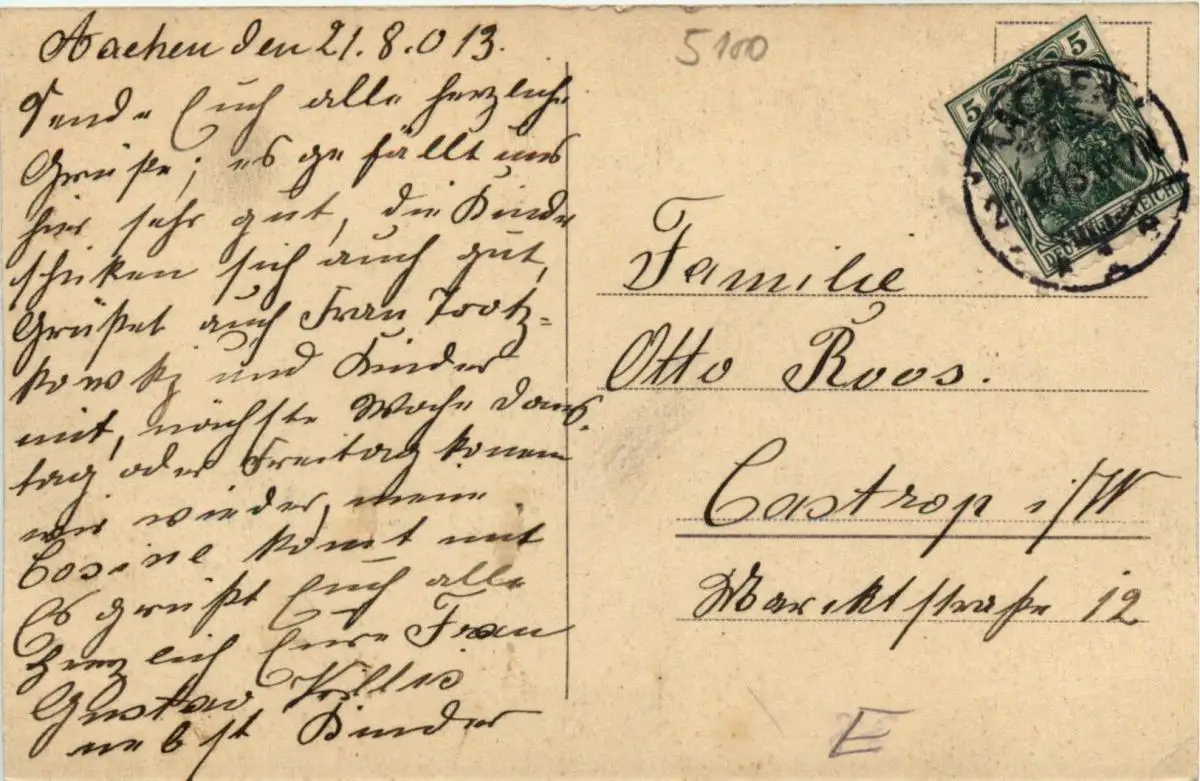 Aachen den 21.8.013.
Sende Euch alle herzliche
Grüße; es gefällt uns
hier sehr gut, die Kinder
schiken sich auch gut,
Grüßet auch Frau Trotz=
kowski und Kinder
mit, nächste Woche Dons.
tag oder Freitag komen
wir wieder, meine
Cosine komt mit
Es grüßt Euch alle
Herzlich Eure Frau
Gustav
nebst Kinder
5100
5
5
AACHEN
DEUTSCHES REICH
Familie
Otto Roos.
Castrop i/W
Marcktstraße 12
E